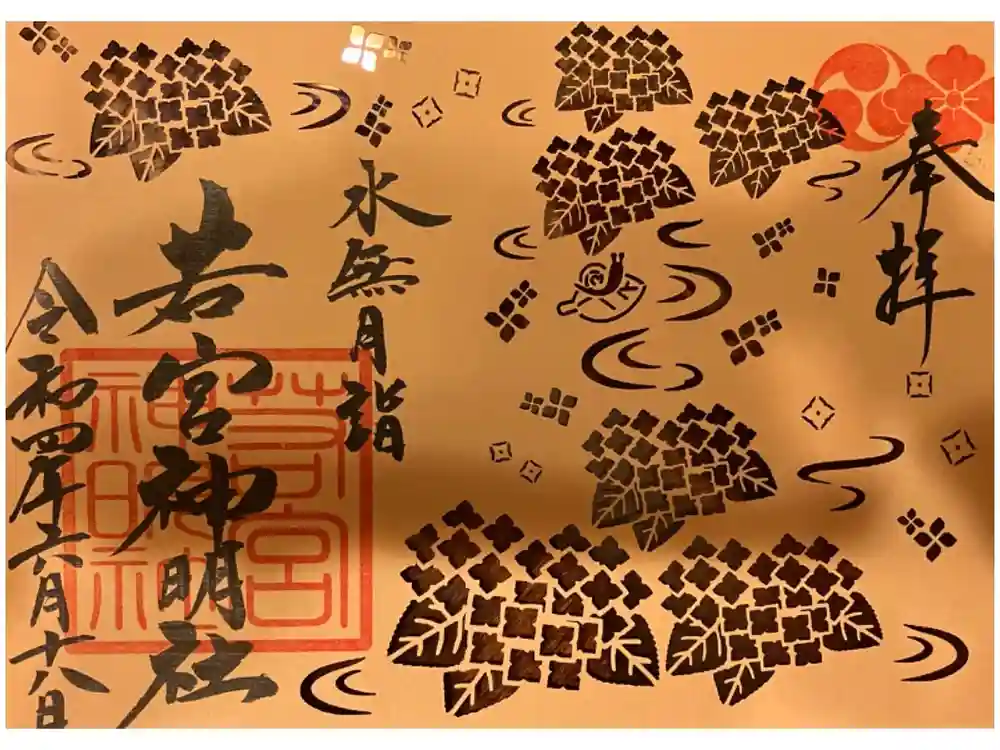 奉拝
水無月詣
若宮神明社
令和四年六月十八日
若宮
神明社